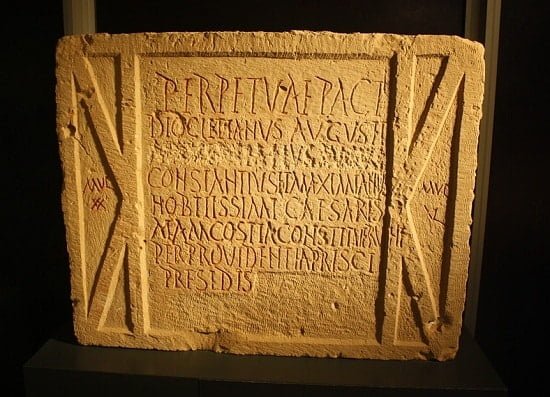 PERPETVAE PACI
DIOCLETIANVS AVGVSTI
CONSTANTIVS ET MAXIMIANVS
CAESARIS
MAM COSTIA CONSTITVERVNT
PER PROVIDENTIA PRISCI
PRESEDIS
MVL
XX